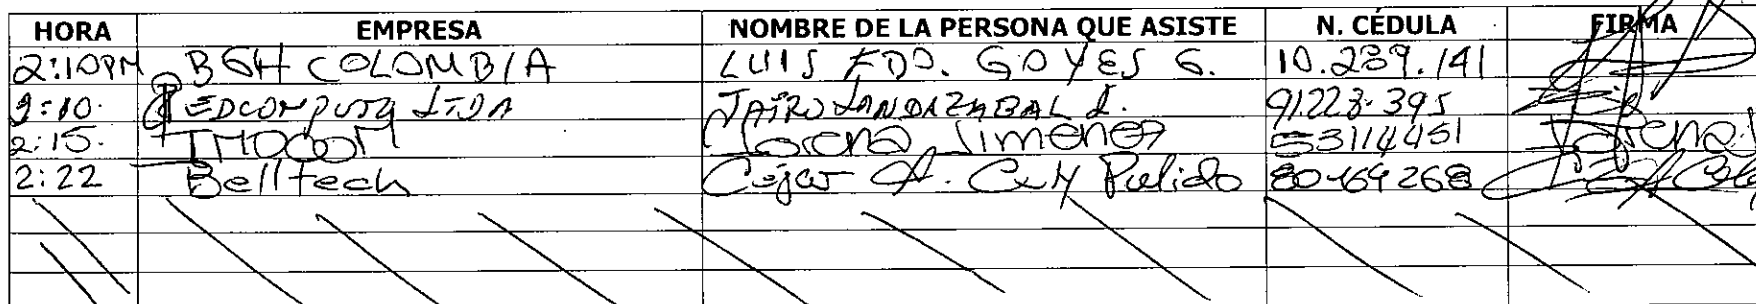 HORA EMPRESA NOMBRE DE LA PERSONA QUE ASISTE N. CÉDULA FIRMA
2:10PM BGH COLOMBIA LUIS FDO. GOYES G. 10.239.141
2:10. REDCOMPUTO LTDA JAIRO LANDAZABAL L. 91.228.395
2:15. Lorena Jimenez 53114451 Lorena J
2:22 Belltech Cesar A. Cely Pulido 80169268